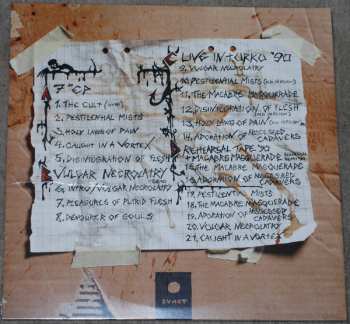 7" EP
1. THE CULT (LIVE)
2. PESTILENTIAL MISTS
3. HOLY LAND OF PAIN
4. CAUGHT IN A VORTEX
5. DISINTEGRATION OF FLESH
VULGAR NECROLATRY
6. INTRO / VULGAR NECROLATRY
7. PLEASURES OF PUTRID FLESH
8. DEVOURER OF SOULS
LIVE IN TURKU '90
9. VULGAR NECROLATRY
10. PESTILENTIAL MISTS
11. THE MACABRE MASQUERADE
12. DISINTEGRATION OF FLESH
13. HOLY LAND OF PAIN
14. ADORATION OF
CADAVERS
REHEARSAL TAPE '90
MACABRE MASQUERADE
15. THE MACABRE MASQUERADE
16. ADORATION OF
CADAVERS
17. PESTILENTIAL MISTS
18. THE MACABRE MASQUERADE
19. ADORATION OF
CADAVERS
20. VULGAR NECROLATRY
21. CAUGHT IN A VORTEX
SVART